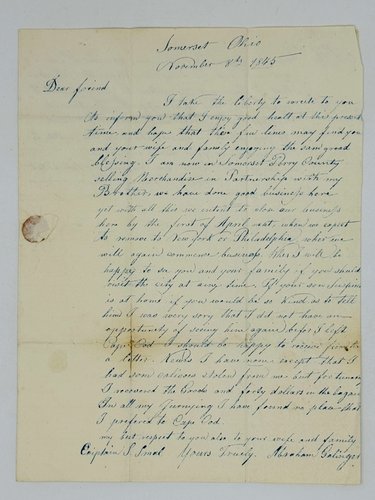 Somerset Ohio
November 8th 1845
Dear friend
I take the liberty to wrete to you
to inform you that I enjoy good healt at the present
time and hope that these few lines may find you
and your wife and family enjoying the same good
blessing. I am now in Somerset Perry County
selling Merchandise in Partnership with my
Brother, we have done good business here
yet with all this we intent to close our business
here by the first of April next, when we expect
to remove to New york or Philadelphia, wher we
will again commence business ther I will be
happy to see you and your family if you should
visit the city at any time. If your son
is at home if you would be so kind as to tell
him I was very sory that I did not have an
oppertunity of seeing him again before I left
Cape Cod I should be happy to receive from
a letter. Newes I have none except that I
had some calicoes stolen from me but fortunaty
I recovered the Goods and forty dollars in the bargain
In all my Journying I have found no place that
I prefered to Cape Cod.
my best respect to you also to your wife and family
Captain S. Smal Yours Truely. Abraham